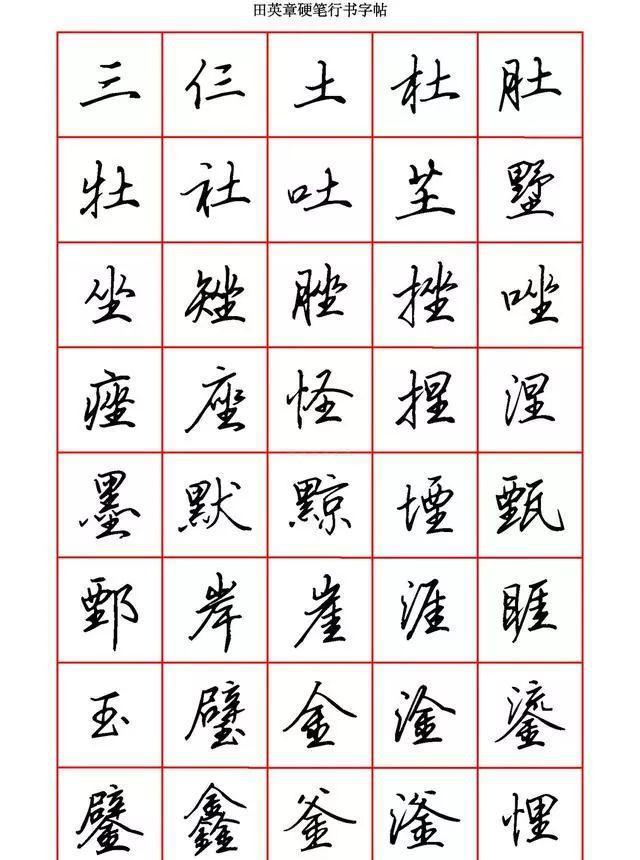 田英章硬笔行书字帖
三 仨 土 杜 肚
牡 社 吐 芏 墅
坐 矬 脞 挫 唑
痤 座 怪 捏 涅
墨 默 黥 堙 甄
鄄 岸 崖 涯 睚
玉 璧 金 淦 鎏
鐾 鑫 釜 滏 悝